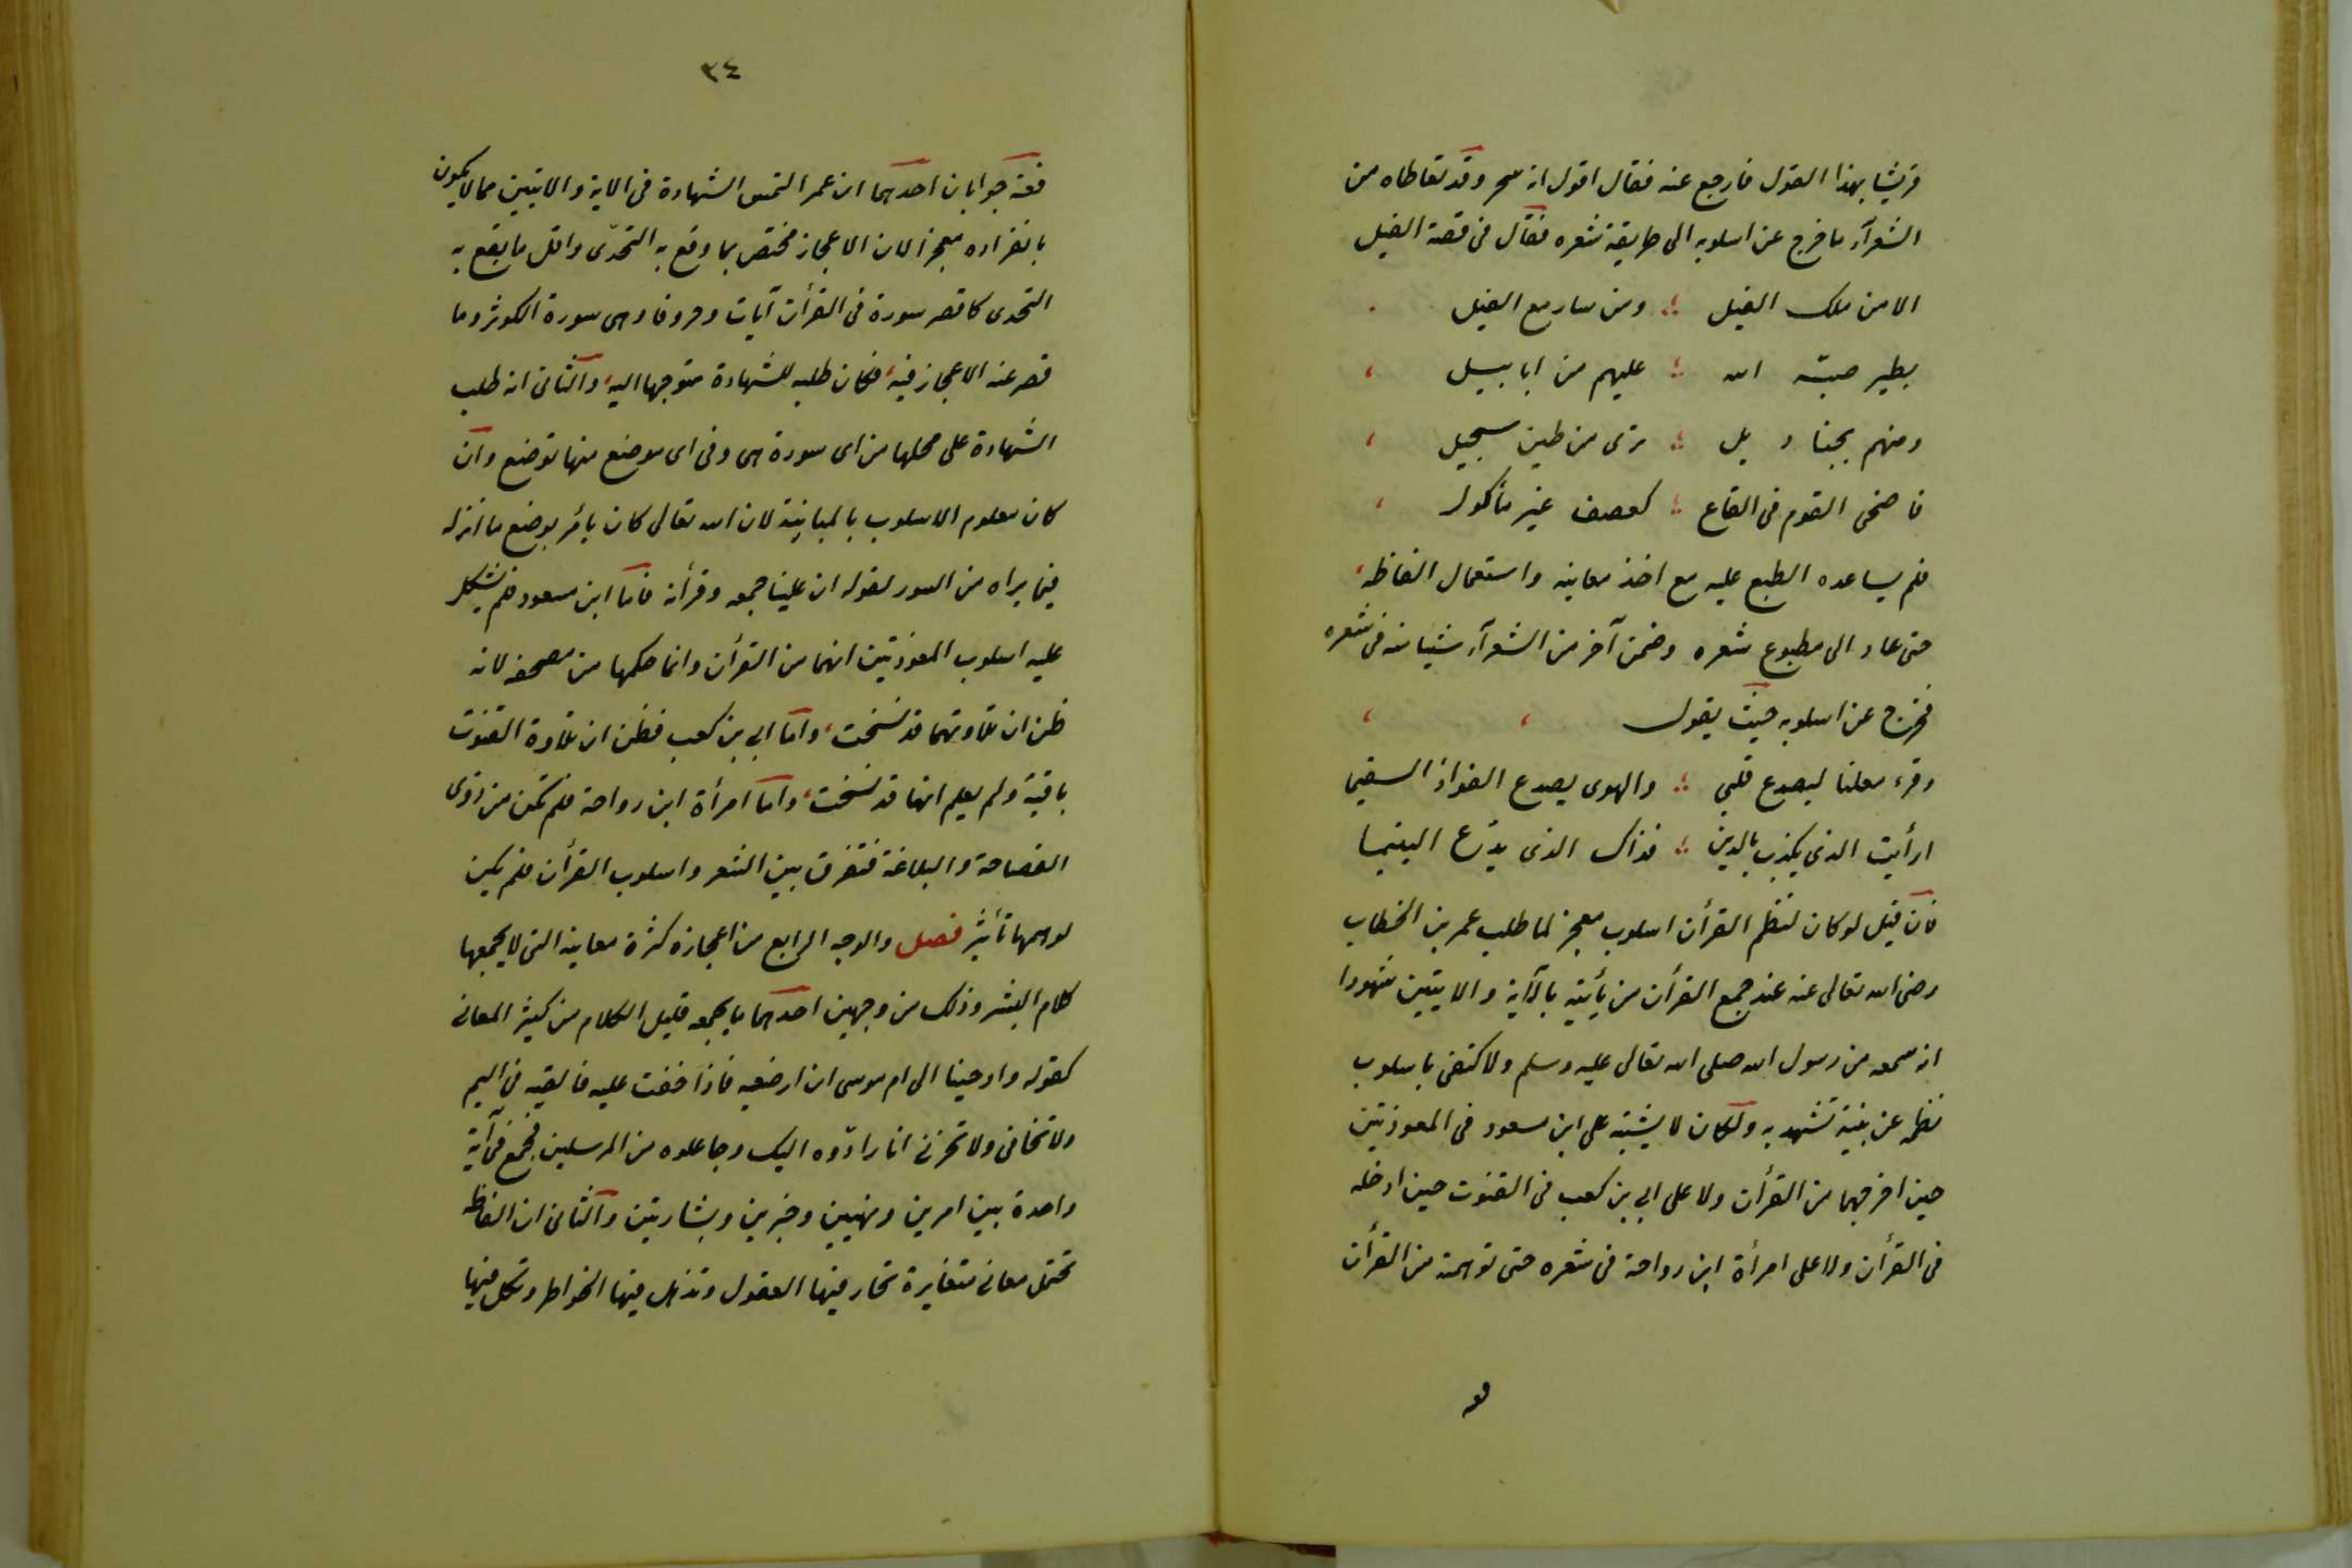 قريشا بهذا القول فارجع عنه فقال اقول انه سحر وقد تعاطاه من
الشعرآء ما خرج عن اسلوبه الى طريقة شعره فقال فى قصة الفيل
الا من ملك الفيل ؛ ومن سار مع الفيل
بطير صبّه الله ؛ عليهم من ابابيل
ومنهم بجنادل ؛ ترى من طين سجيل
فاضحى القوم فى القاع ؛ كعصف غير مأكول
فلم يساعده الطبع عليه مع اخذ معانيه واستعمال الفاظه
حتى عاد الى مطبوع شعره وضمن آخر من الشعرآء شيأ منه فى شعره
فخرج عن اسلوبه حيث يقول
وقرء معلنا ليصدع قلبى ؛ والهوى يصدع الفواد السقيما
ارأيت الذى يكذب بالدين ؛ فذاك الذى يدّع اليتيما
فان قيل لو كان لنظم القرأن اسلوب معجز لما طلب عمر بن الخطاب
رضى الله تعالى عنه عند جمع القرأن من يأتيه بالآية والايتين شهودا
انه سمعه من رسول الله صلى الله تعالى عليه وسلم ولاكتفى باسلوب
نظمه عن بنية تشهد به ولكان لا يشتبه على ابن مسعود فى المعوذتين
حين اخرجهما من القرأن ولا على ابي بن كعب فى القنوت حين ادخله
فى القرأن ولا على امرأة ابن رواحة فى شعره حتى توهمته من القرأن
فعـ
٣٤
فعنه جوابان احدهما ان عمر التمس الشهادة فى الاية والايتين مما لا يكون
بانفراده معجزا لان الاعجاز مختص بما وقع به التحدّى واقل ما يقع به
التحدى كاقصر سورة فى القرأن آيات وحروفا وهى سورة الكوثر وما
قصر عنه الاعجاز فيه فكان طلبه للشهادة متوجها اليه والثانى انه طلب
الشهادة على محلها من اى سورة هى وفى اى موضع منها توضع وان
كان معلوم الاسلوب بالمباينة لان الله تعالى كان يأمر بوضع ما انزله
فيما يراه من السور لقوله ان علينا جمعه وقرأنه فاما ابن مسعود فلم يشكل
عليه اسلوب المعوذتين انهما من القرأن وانما حكهما من مصحفه لانه
ظن ان تلاوتهما قد نسخت واما ابي بن كعب فظن ان تلاوة القنوت
باقية ولم يعلم انها قد نسخت واما امرأة ابن رواحة فلم تكن من ذوى
الفصاحة والبلاغة فتفرق بين الشعر واسلوب القرأن فلم يكن
لوهمها تأثير فصل والوجه الرابع من اعجازه كثرة معانيه التى لا يجمعها
كلام البشر وذلك من وجهين احدهما ما يجمعه قليل الكلام من كثير المعانى
كقوله واوحينا الى ام موسى ان ارضعيه فاذا خفت عليه فالقيه فى اليم
ولا تخافى ولا تحزنى انا رادّوه اليك وجاعلوه من المرسلين فجمع فى آية
واحدة بين امرين ونهيين وخبرين وبشارتين والثانى ان الفاظه
تحتمل معانى متغايرة تحار فيها العقول وتذهل فيها الخواطر وتكل فيها